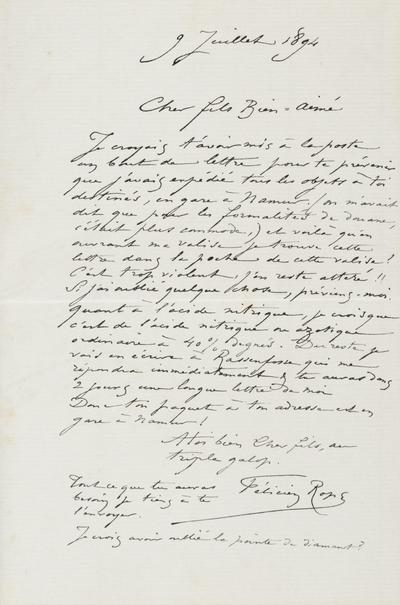 9 Juillet 1894
Cher fils Bien-aimé
Je croyais t'avoir mis à la poste
un bout de lettre pour te prévenir
que j'avais expédié tous les objets à toi
destinés, en gare à Namur, (on m'avait
dit que pour les formalités de douane,
c'était plus commode,) et voilà qu'en
ouvrant ma valise je trouve cette
lettre dans la poche de cette valise!
C'est trop violent, j'en reste atterré!!
Si j'ai oublié quelque chose, préviens-moi.
quant à l'acide nitrique, je crois que
c'est de l'acide nitrique ou azotique
ordinaire à 40% degrés. Du reste je
vais en écrire à Rassenfosse qui me
répondra immédiatement & tu auras dans
2 jours une longue lettre de moi
Donc ton paquet à ton adresse est en
gare à Namur!
A toi bien cher fils, au
triple galop.
Félicien Rops
Tout ce que tu auras
besoin je tiens à te
l'envoyer.
Je crois avoir oublié la pointe de diamant?